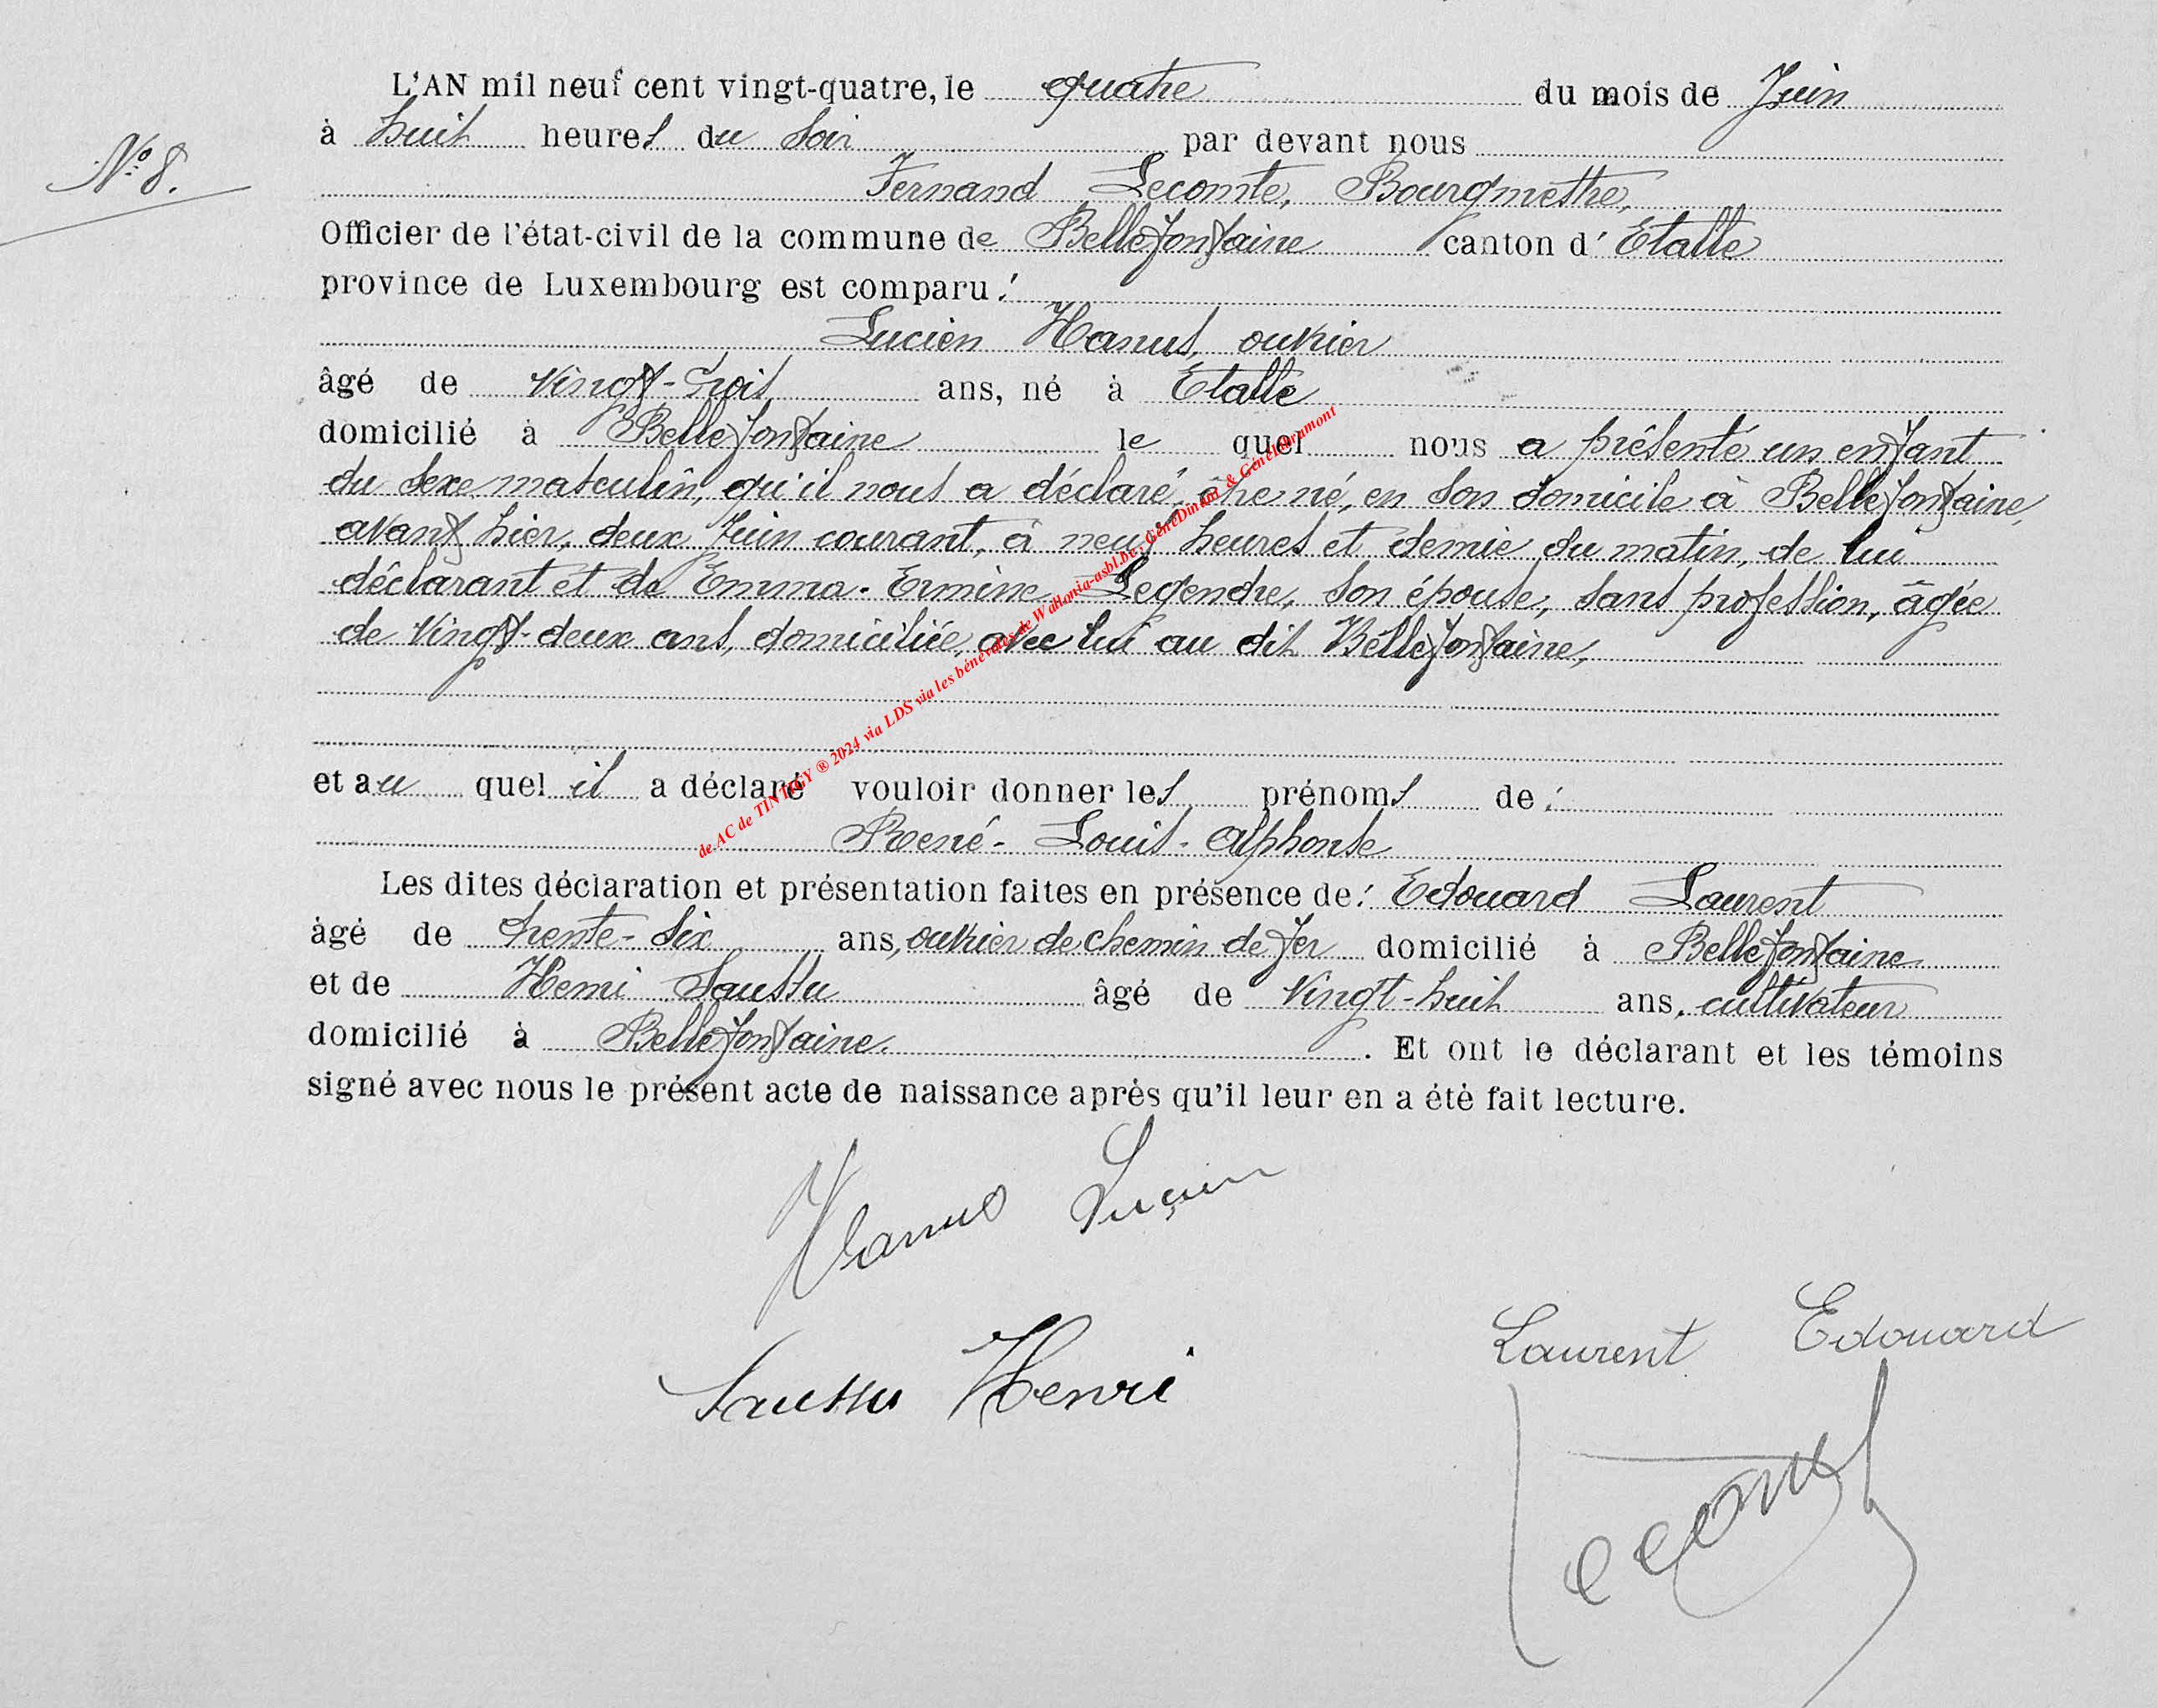 L'AN mil neuf cent vingt-quatre, le quatre du mois de Juin
à huit heures du soir par devant nous
N° 8.
Fernand Lecomte, Bourgmestre,
Officier de l'état-civil de la commune de Bellefontaine canton d' Etalle
province de Luxembourg est comparu :
Lucien Hanus, ouvrier
âgé de vingt-trois ans, né à Etalle
domicilié à Bellefontaine le quel nous a présenté un enfant
du sexe masculin, qu'il nous a déclaré être né, en son domicile à Bellefontaine,
avant hier, deux Juin courant, à neuf heures et demie du matin, de lui
déclarant et de Emma-Ermine Legendre, son épouse, sans profession, âgée
de vingt-deux ans, domiciliée avec lui au dit Bellefontaine,
et au quel il a déclaré vouloir donner les prénoms de :
René-Louis-Alphonse
Les dites déclaration et présentation faites en présence de : Edouard Laurent
âgé de trente-six ans, ouvrier de chemin de fer domicilié à Bellefontaine
et de Henri Saussu âgé de vingt-huit ans, cultivateur
domicilié à Bellefontaine. . Et ont le déclarant et les témoins
signé avec nous le présent acte de naissance après qu'il leur en a été fait lecture.
Hanus Lucien
Laurent Edouard
Saussu Henri
Lecomte
de AC de TINTIGY ® 2024 via LDS via les bénévoles de Wallonia-asbl.be, GénéDinant & GénéLibramont